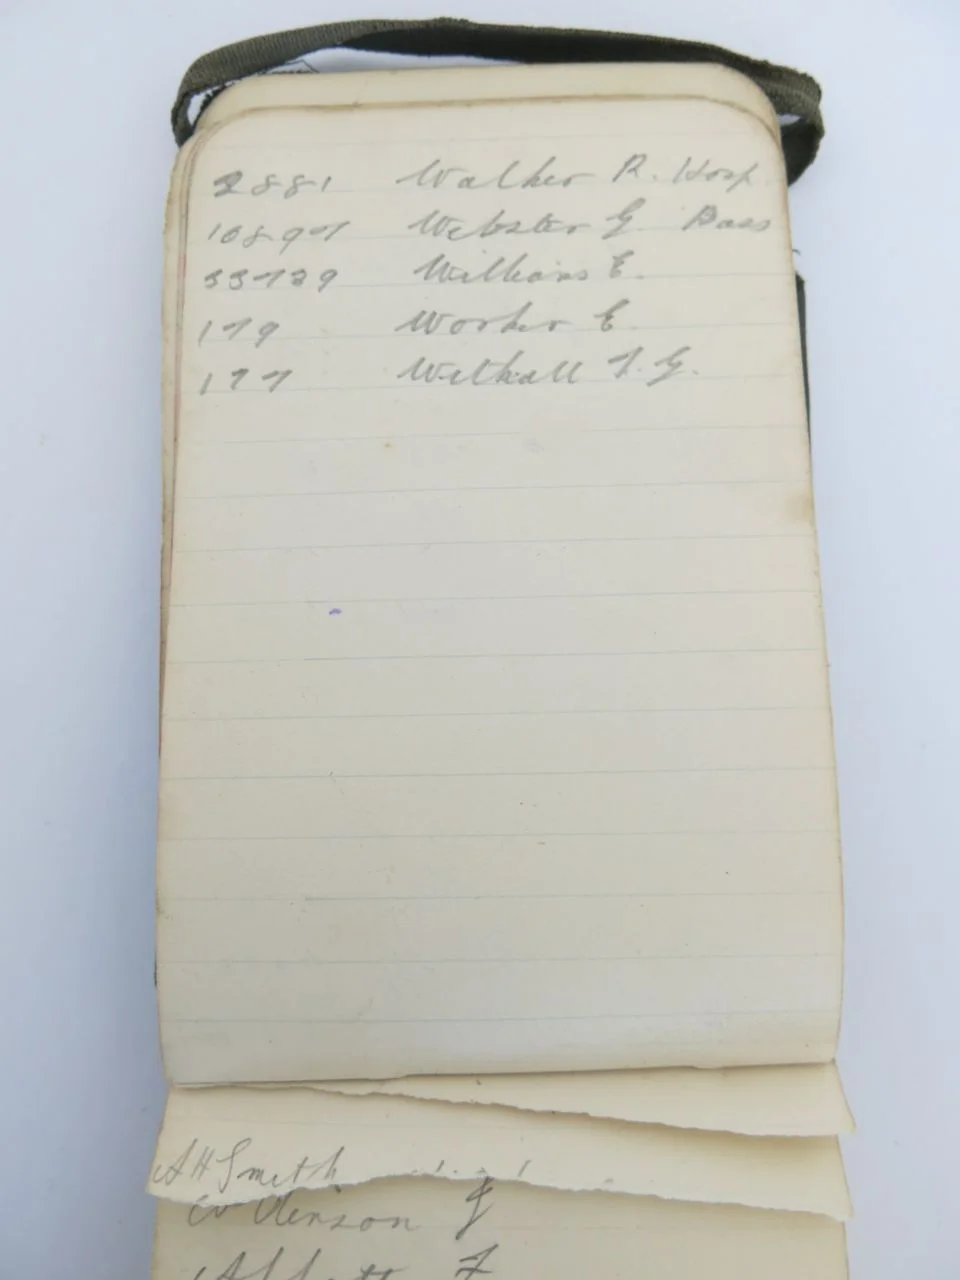 2881 Walker R. Hosp
10897 Webster G. Pass
33739 Williams E.
179 Worker E.
177 Withall T. G.
A H Smith